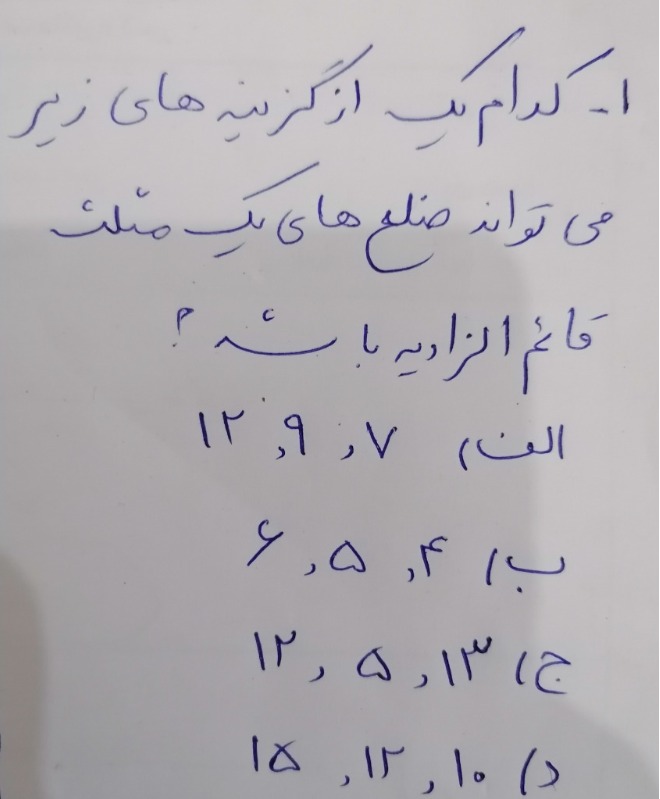 ۱- کدام یک از گزینه های زیر
می تواند ضلع های یک مثلث
قائم الزاویه باشد؟
الف) ۷, ۹, ۱۲
ب) ۴, ۵, ۶
ج) ۱۳, ۵, ۱۲
د) ۱۰, ۱۲, ۱۵